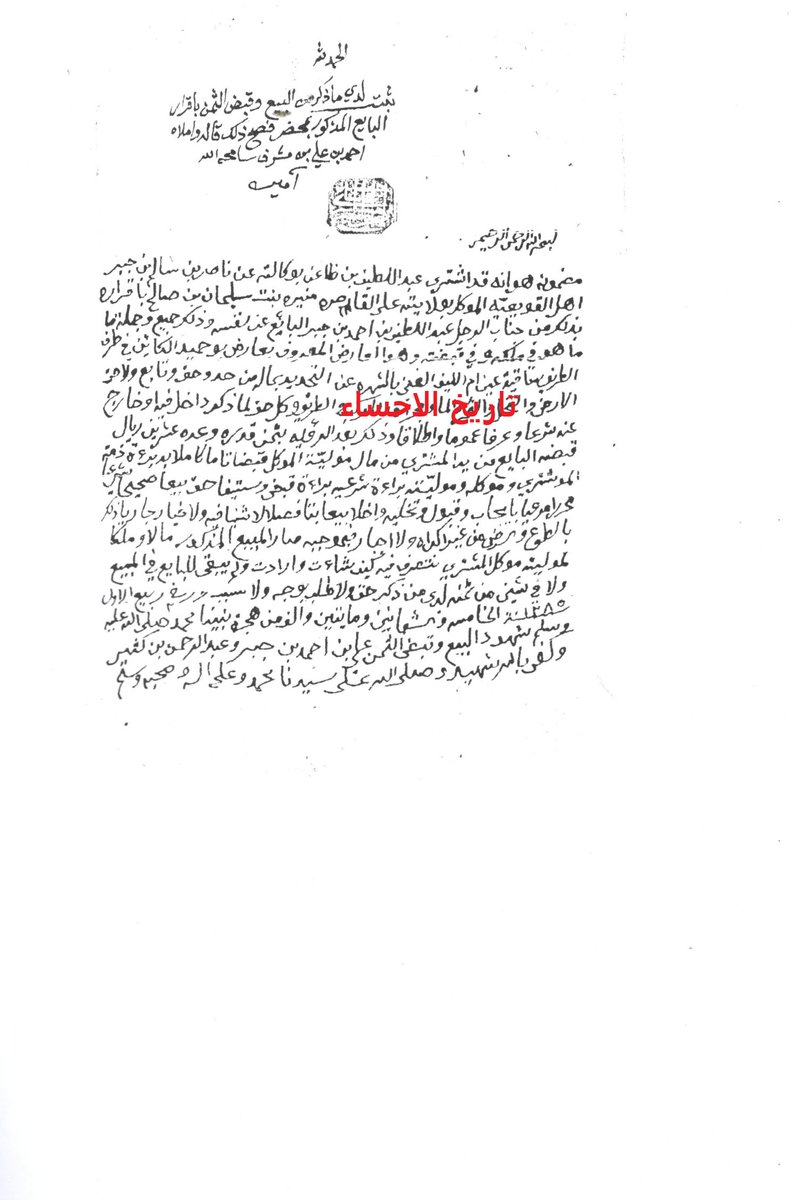 الحمد لله
ثبت لدي ما ذكر من البيع وقبض الثمن باقرار
البايع المذكور بمحضر فصح ذلك قاله واملاه
احمد بن علي بن مشرف سامحه الله
آمين
بسم الله الرحمن الرحيم
مضمونه هو انه قد اشتري عبد اللطيف بن ظاعن بوكالته عن ناصر بن سالم بن جبر
اهل القويعيه الموكل بولايته على القاصره منيره بنت سليمان بن صالح باقراره
بذلك من جناب الرجل عبد اللطيف بن احمد بن جبر البائع عن نفسه وذلك جميع وجملة ما
ما هو في ملكه وفي قبضته وهو العارض المعروف بعارض بو حميد الكائن في طرف
الطرف ساقية عين ام الليف الغني بالشهره عن التحديد بماله من حد وحق وتابع ولاحق
الارض والنخل الطرف وكل حق لما ذكر داخل فيه وخارج
تاريخ الاحساء
عنه شرعا وعرفا عموما واطلاقا وذلك بعد الرؤيه بثمن قدره وعده عشرين ريال
قبضه البايع من يد المشتري من مال مولية الموكل قبضا تاما كاملا به برءة ذمة
المشتري وموكله وموليته براءة شرعيه براءة قبض وستيفا حق بيعا صحيحا شرعي
محررا مرعيا بايجاب وقبول وتخليه واخلا بيعا بتا فصلا لا ثنيا فيه ولا خيار جاريا ذلك
بالطوع والرضى من غير اكراه ولا اجبار بموجبه صار المبيع المذكور مالا وملكا
لمولية موكل المشتري تتصرف فيه كيف شاءت وارادت ولم يبقى للبايع في المبيع
ولا في شيئ من ثمنه لدى من ذكر حق ولا طلب بوجه ولا سبب حرر في ربيع الاول
١٢٨٥ سنة الخامسه وثمانين ومايتين والف من هجرة نبينا محمد صلى الله عليه
وسلم شهود البيع وقبض الثمن علي بن احمد بن جبر وعبد الرحمن بن كثير
وكفى بالله شهيد وصلى الله على سيدنا محمد وعلى اله وصحبه وسلم